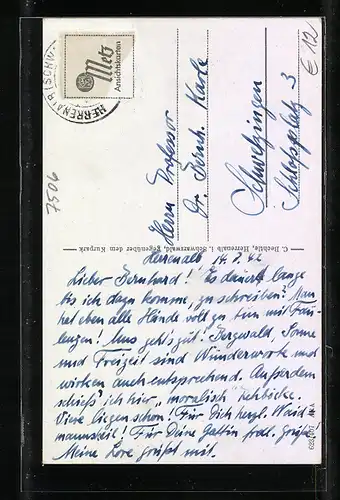 HERRENALB (SCHW.
Metz
Ansichtskarten
€ 12
7506
Herrn Professor
Dr. Bernh. Karle
Schwetzingen
Schlossplatz 3
C. Bechtle, Herrenalb i. Schwarzwald, gegenüber dem Kurpark
Herrenalb 14.7.42
Lieber Bernhard! Es dauert lange
bis ich dazu komme, zu schreiben! Man
hat eben alle Hände voll zu tun mit Fau-
lenzen! Uns geht's gut! Bergwald, Sonne
und Freizeit sind Wunderworte und
wirken auch entsprechend. Außerdem
schieß' ich hier, "moralisch" Rehböcke.
Viere liegen schon! Für Dich herzl. Waid-
mannsheil! Für Deine Gattin frdl. Grüße
Meine Lore grüßt mit.